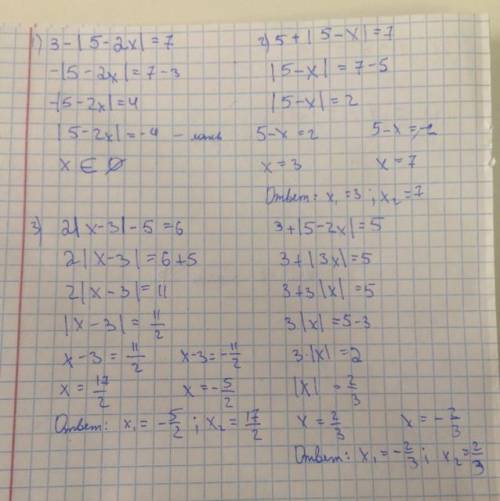 1) 3-|5-2x|=7
-|5-2x|=7-3
-|5-2x|=4
|5-2x|=-4 - ложь
x∈∅
2) 5+|5-x|=7
|5-x|=7-5
|5-x|=2
5-x=2 5-x=-2
x=3 x=7
Ответ: x₁=3; x₂=7
3) 2|x-3|-5=6
2|x-3|=6+5
2|x-3|=11
|x-3|=11/2
x-3=11/2 x-3=-11/2
x=17/2 x=-5/2
Ответ: x₁=-5/2; x₂=17/2
3+|5-2x|=5
3+|3x|=5
3+3|x|=5
3|x|=5-3
3·|x|=2
|x|=2/3
x=2/3 x=-2/3
Ответ: x₁=-2/3; x₂=2/3